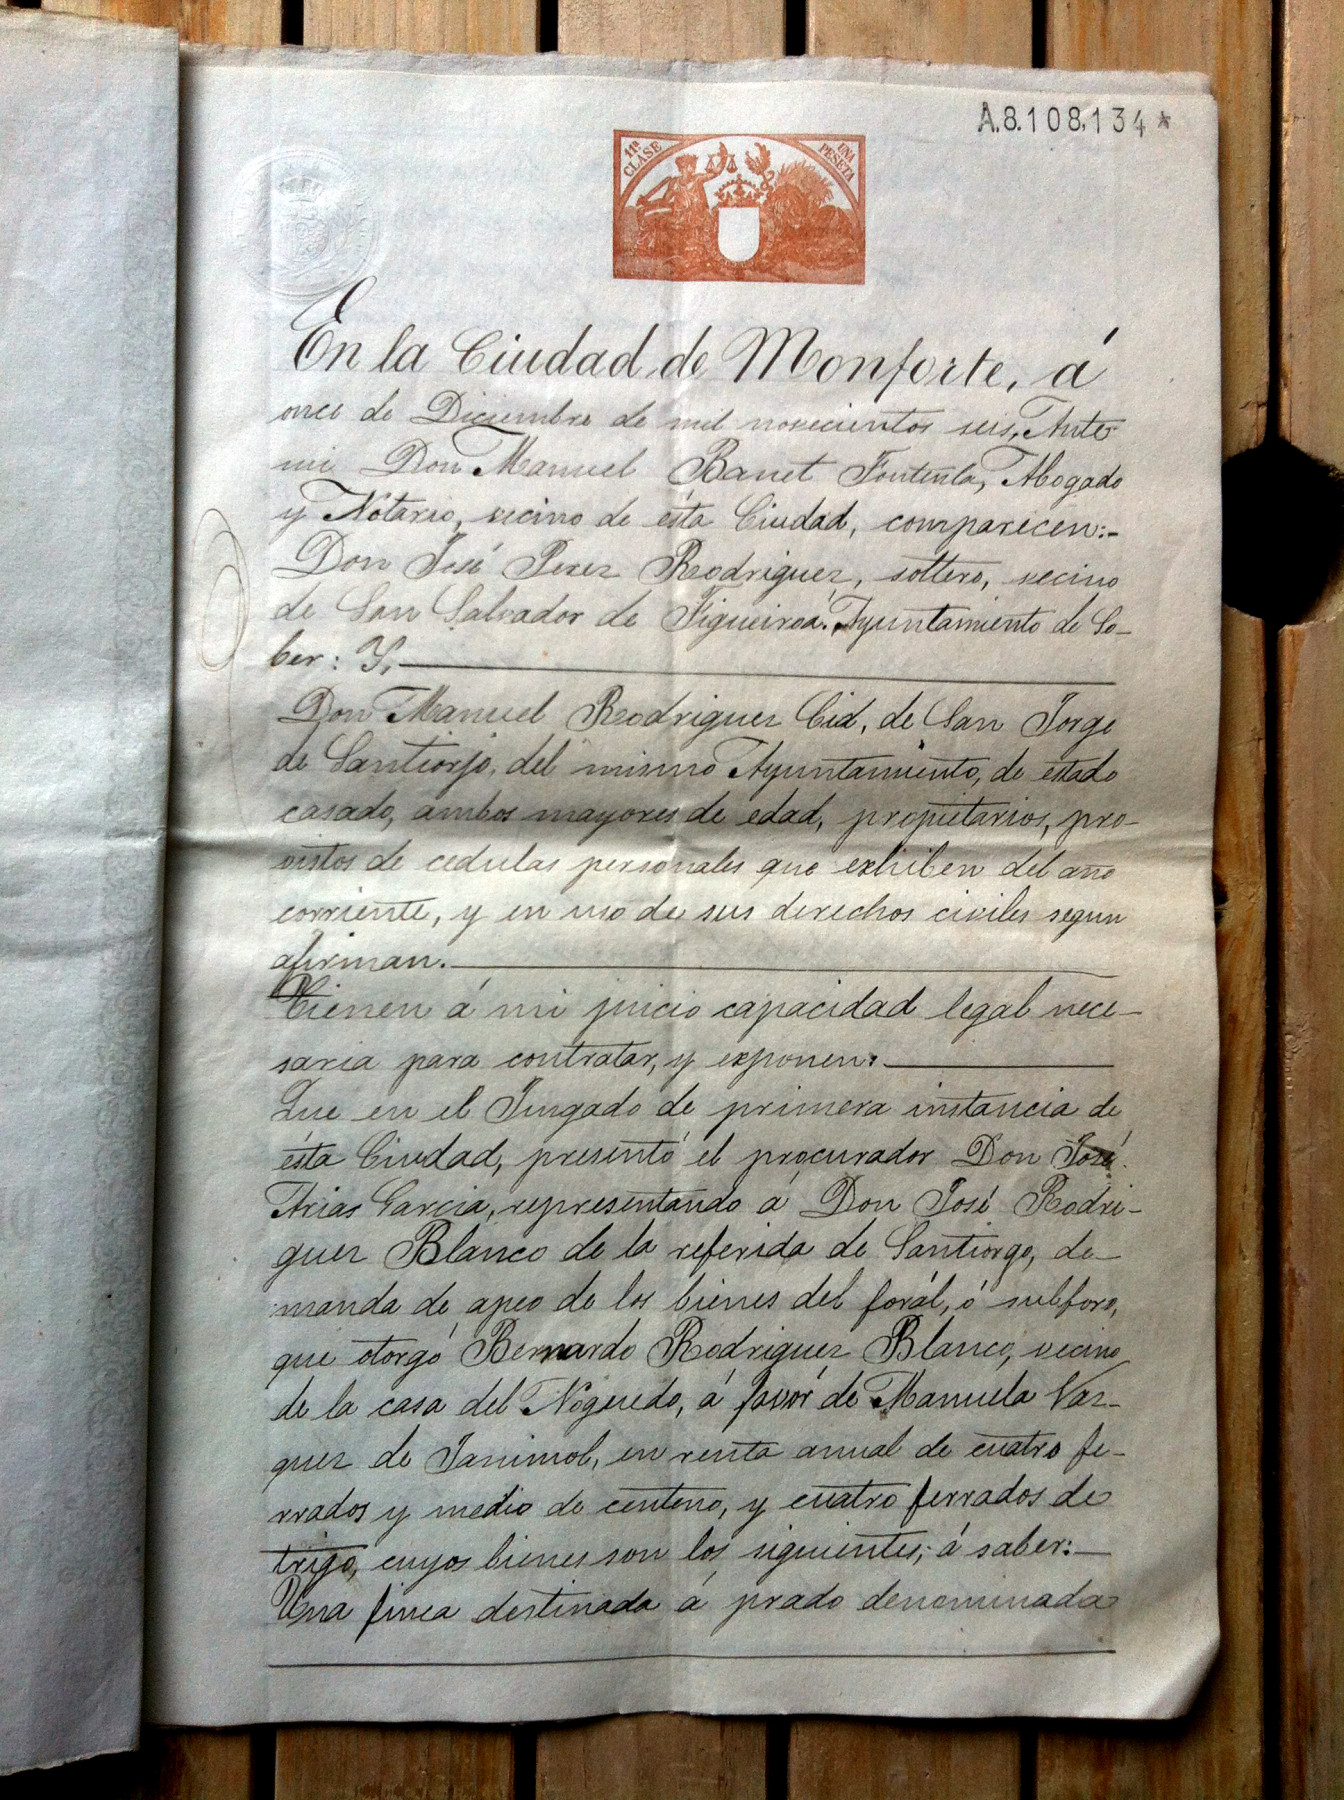 A.8.108,134*
11ª CLASE
UNA PESETA
En la Ciudad de Monforte, á
once de Diciembre de mil novecientos seis, Ante
mi Don Manuel Banet Fontenla, Abogado
y Notario, vecino de ésta Ciudad, comparecen:-
Don José Perez Rodriguez, soltero, vecino
de San Salvador de Figueiroa, Ayuntamiento de So-
ber: Y,
Don Manuel Rodriguez Cid, de San Jorge
de Santiorjo, del mismo Ayuntamiento, de estado
casado, ambos mayores de edad, propietarios, pro-
vistos de cedulas personales que exhiben del año
corriente, y en uso de sus derechos civiles segun
afirman.
Tienen á mi juicio capacidad legal nece-
saria para contratar, y exponen:
Que en el Juzgado de primera instancia de
ésta Ciudad, presentó el procurador Don José
Arias Garcia, representando á Don José Rodri-
guez Blanco de la referida de Santiorgo, de-
manda de apeo de los bienes del forál, ó subforo,
que otorgó Bernardo Rodriguez Blanco, vecino
de la casa del Noguedo, á favór de Manuela Vaz-
quez de, en renta anual de cuatro fe-
rrados y medio de centeno, y cuatro ferrados de
trigo, cuyos bienes son los siguientes; á saber:-
Una finca destinada á prado denominada